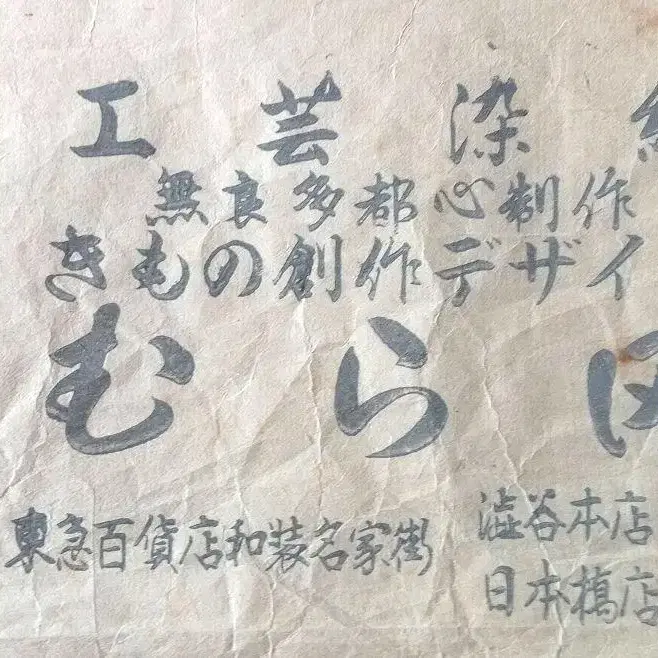 工芸染
無良多都心制作
きもの創作デザイ
むら
東急百貨店和装名家街
澁谷本店
日本橋店